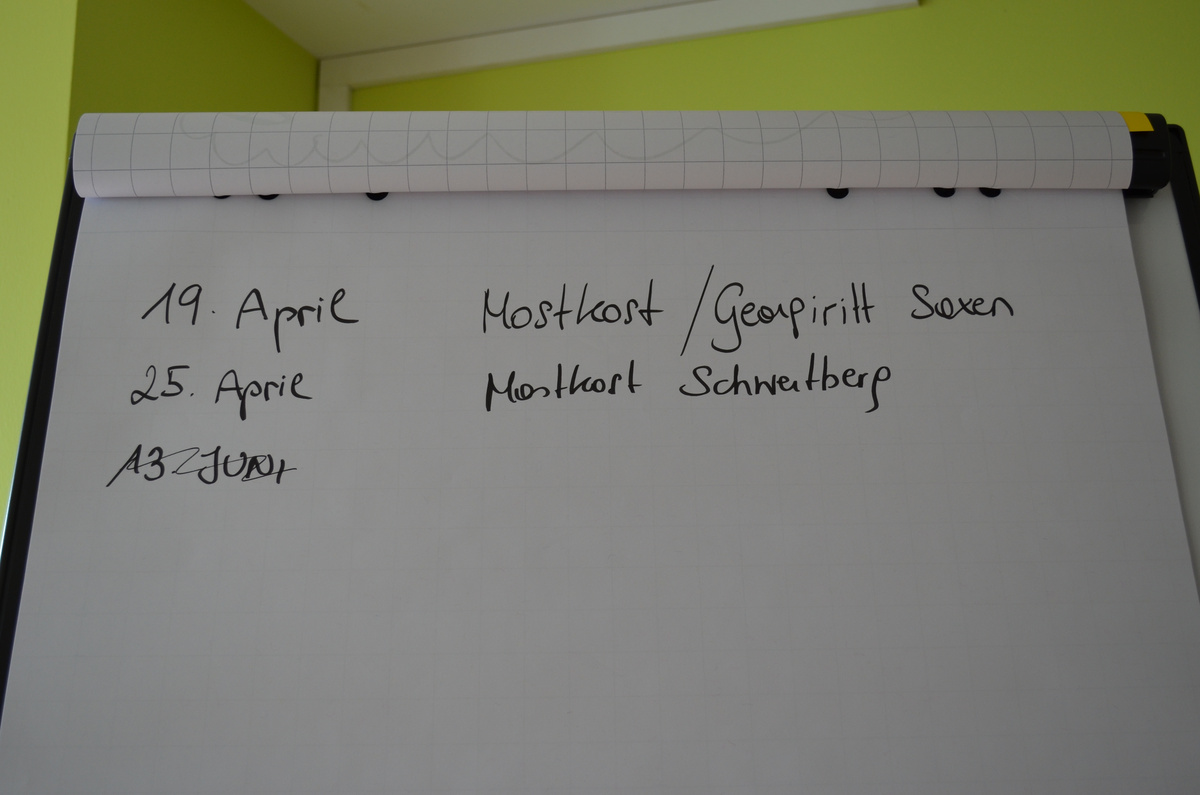 19. April Mostkost / Georgiritt Saxen
25. April Mostkost Schwertberg
13 JUNI